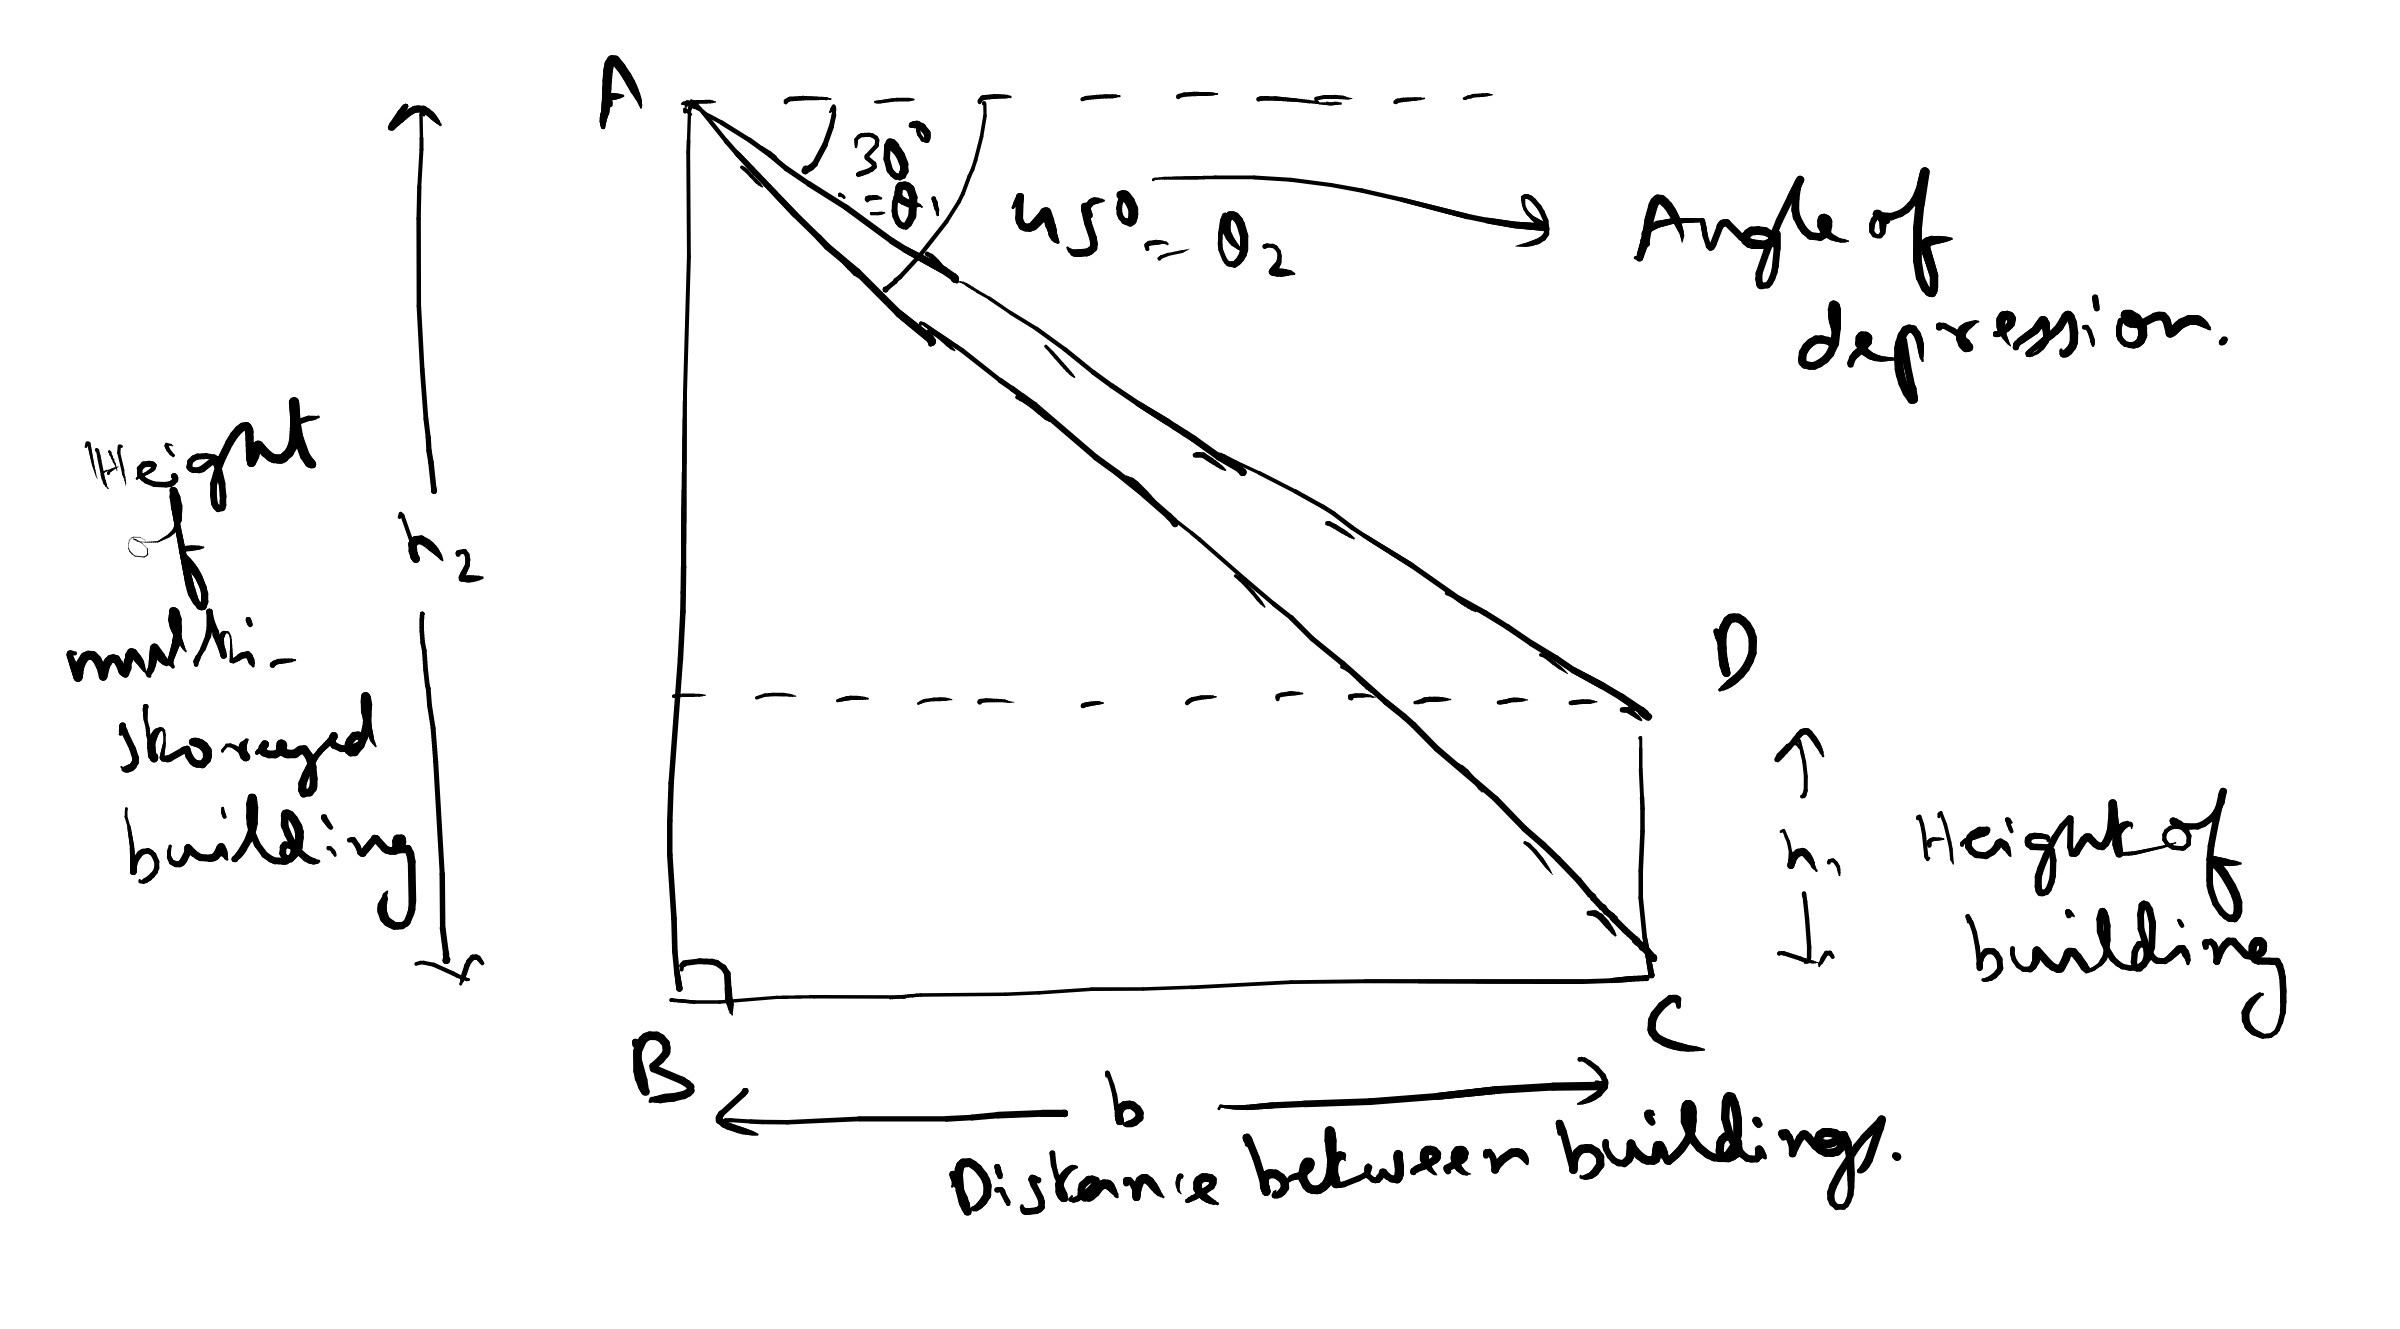 A
30°
= θ₁
45° = θ₂
Angle of
depression.
Height
of
multi-
storeyed
building
h₂
D
h₁
Height of
building
B
C
b
Distance between buildings.